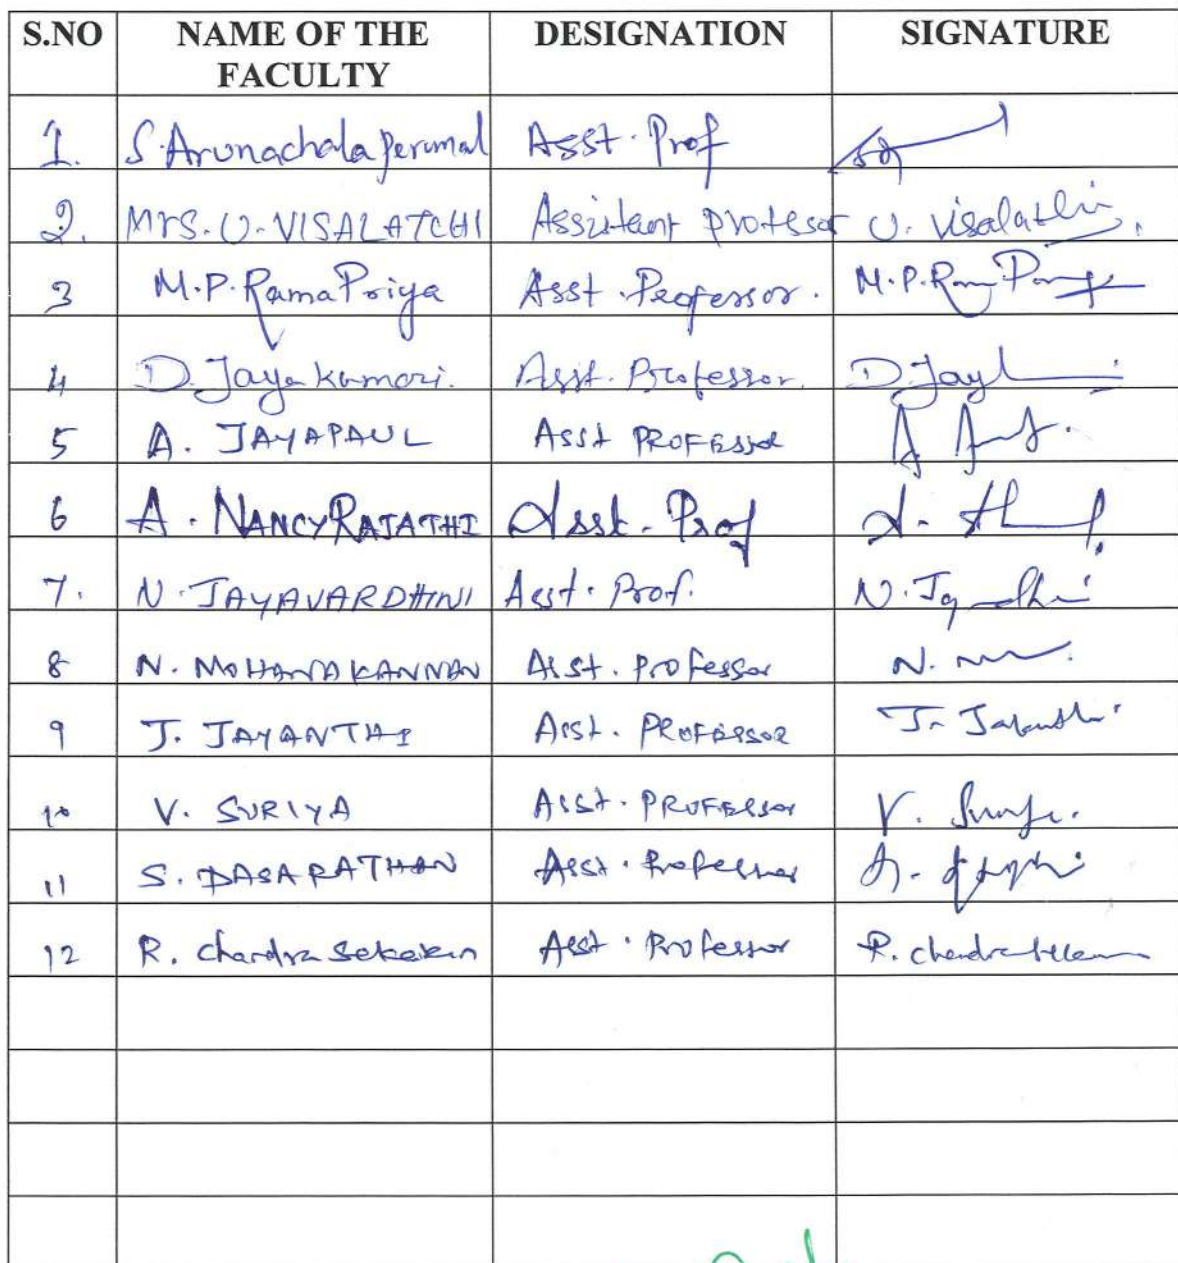 S.NO NAME OF THE FACULTY DESIGNATION SIGNATURE
1. S.Arunachala Perumal Asst. Prof
2. Mrs. U. VISALATCHI Assistant professor U. Visalatchi
3 M.P.RamaPriya Asst. Professor. M.P.Rama
4 D. Jaya kumari. Asst. Professor. D.Jay
5 A. JAYAPAUL Asst PROFESSOR
6 A. NANCYRAJATHI Asst. Prof
7. N. JAYAVARDHINI Asst. Prof. N.
8 N. MOHANA KANNAN Asst. Professor N.
9 J. JAYANTHI Asst. PROFESSOR J. Jayanthi
10 V. SURIYA Asst. PROFESSOR V.
11 S. DASARATHAN Asst. Professor
12 R. Chandra Sekaran Asst. Professor R. Chandra